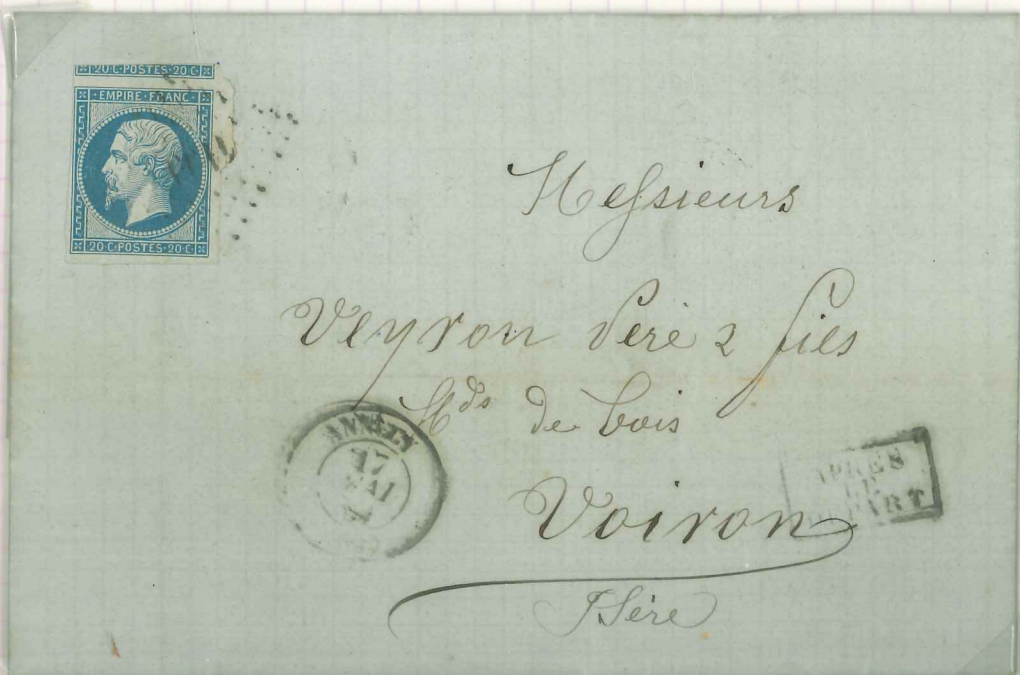 20 C·POSTES·20 C
EMPIRE·FRANC
20·C·POSTES·20·C
Messieurs
Veyron Père & fils
Mds de bois
ANNECY
17
MAI
APRÈS
LE
DÉPART
Voiron
Isère